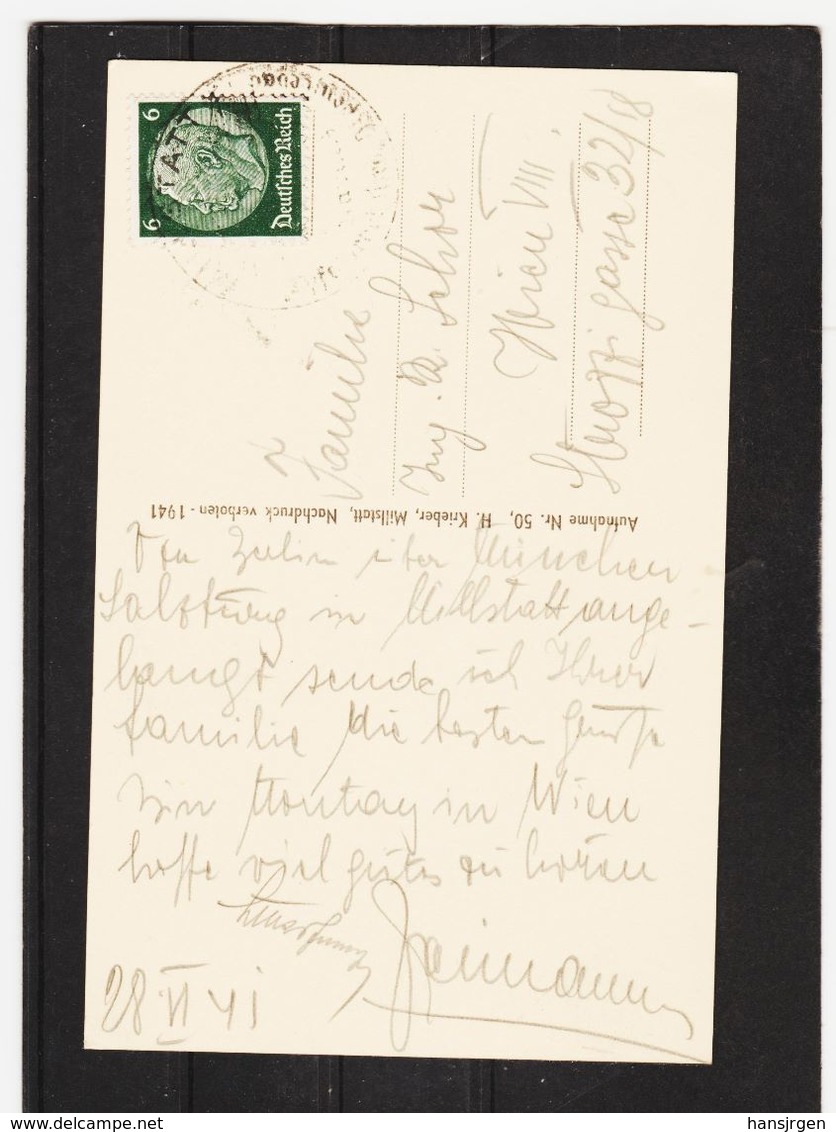 6
6
Deutsches Reich
Familie
Ing. R. Schor
Wien VIII.
Strozzigasse 32/18
Aufnahme Nr. 50, H. Krieber, Millstatt, Nachdruck verboten - 1941
Von Berlin über München
Salzburg in Millstatt ange-
langt sende ich Ihrer
Familie die besten Grüße
bin Montag in Wien
hoffe viel gutes zu hören
28 VI 41
delcampe.net
hansjrgen